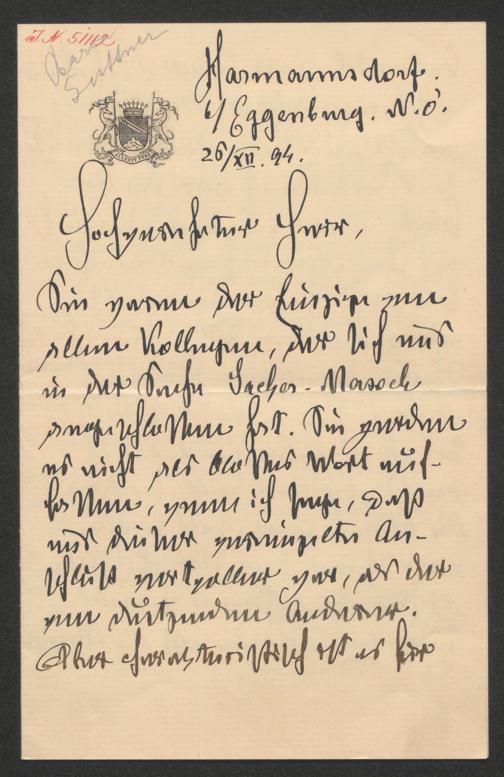 J.N. 51112
Baron
Suttner
Harmannsdorf.
b/ Eggenburg. N.Ö.
26/XII. 94.
Hochverehrter Herr,
Sie waren der Einzige von
allen Kollegen, der sich uns
in der Sache Sacher-Masoch
angeschlossen hat. Sie werden
es nicht als bloßes Wort auf-
fassen, wenn ich sage, daß
uns dieser vereinzelte An-
schluß wertvoller war, als der
von dutzenden Anderer.
Aber charakteristisch ist es für